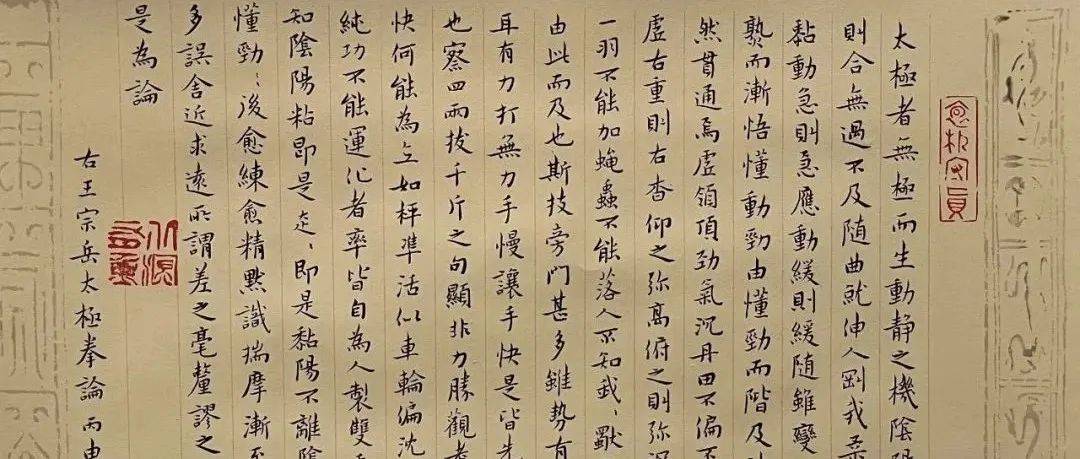 太極者無極而生動靜之機陰陽
則合無過不及随曲就伸人剛我柔
黏動急則急應動緩則緩随雖變
熟而漸悟懂動勁由懂勁而階及
然貫通焉虛領頂勁氣沉丹田不偏不
虛右重則右杳仰之弥高俯之則弥
一羽不能加蝇蟲不能落人不知我、獸
由此而及也斯技旁門甚多雖势有
耳有力打無力手慢讓手快是皆先
也察四兩拔千斤之句顯非力勝觀
快何能為立如枰準活似車輪偏沈
純功不能運化者率皆自為人製雙
知陰陽粘即是走、即是黏陽不離陰
懂勁:後愈練愈精黙識揣摩漸至
多誤舍近求遠所謂差之毫釐謬之
是為論
右王宗岳太極拳論而